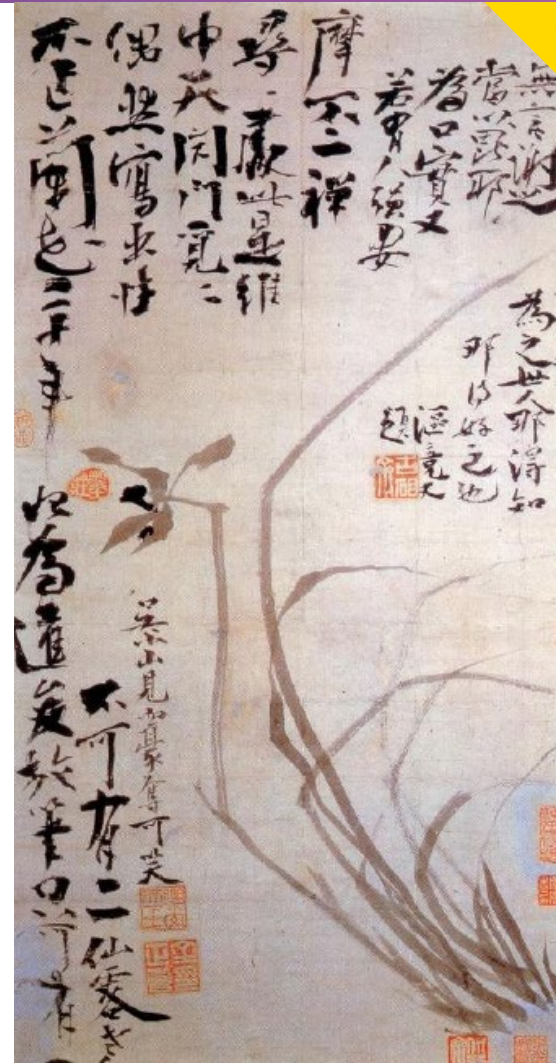 不作蘭花二十年
偶然寫出性
中天閉門覓ミ
尋ミ處此是維
摩不二禪
若有人强要
為口實又
當以毘耶
無言謝之
為之世人那得知
那得好之也
漚竟又
題
始為達俊放筆只可有一
不可有二仙客老
吳小山見而豪奪可笑